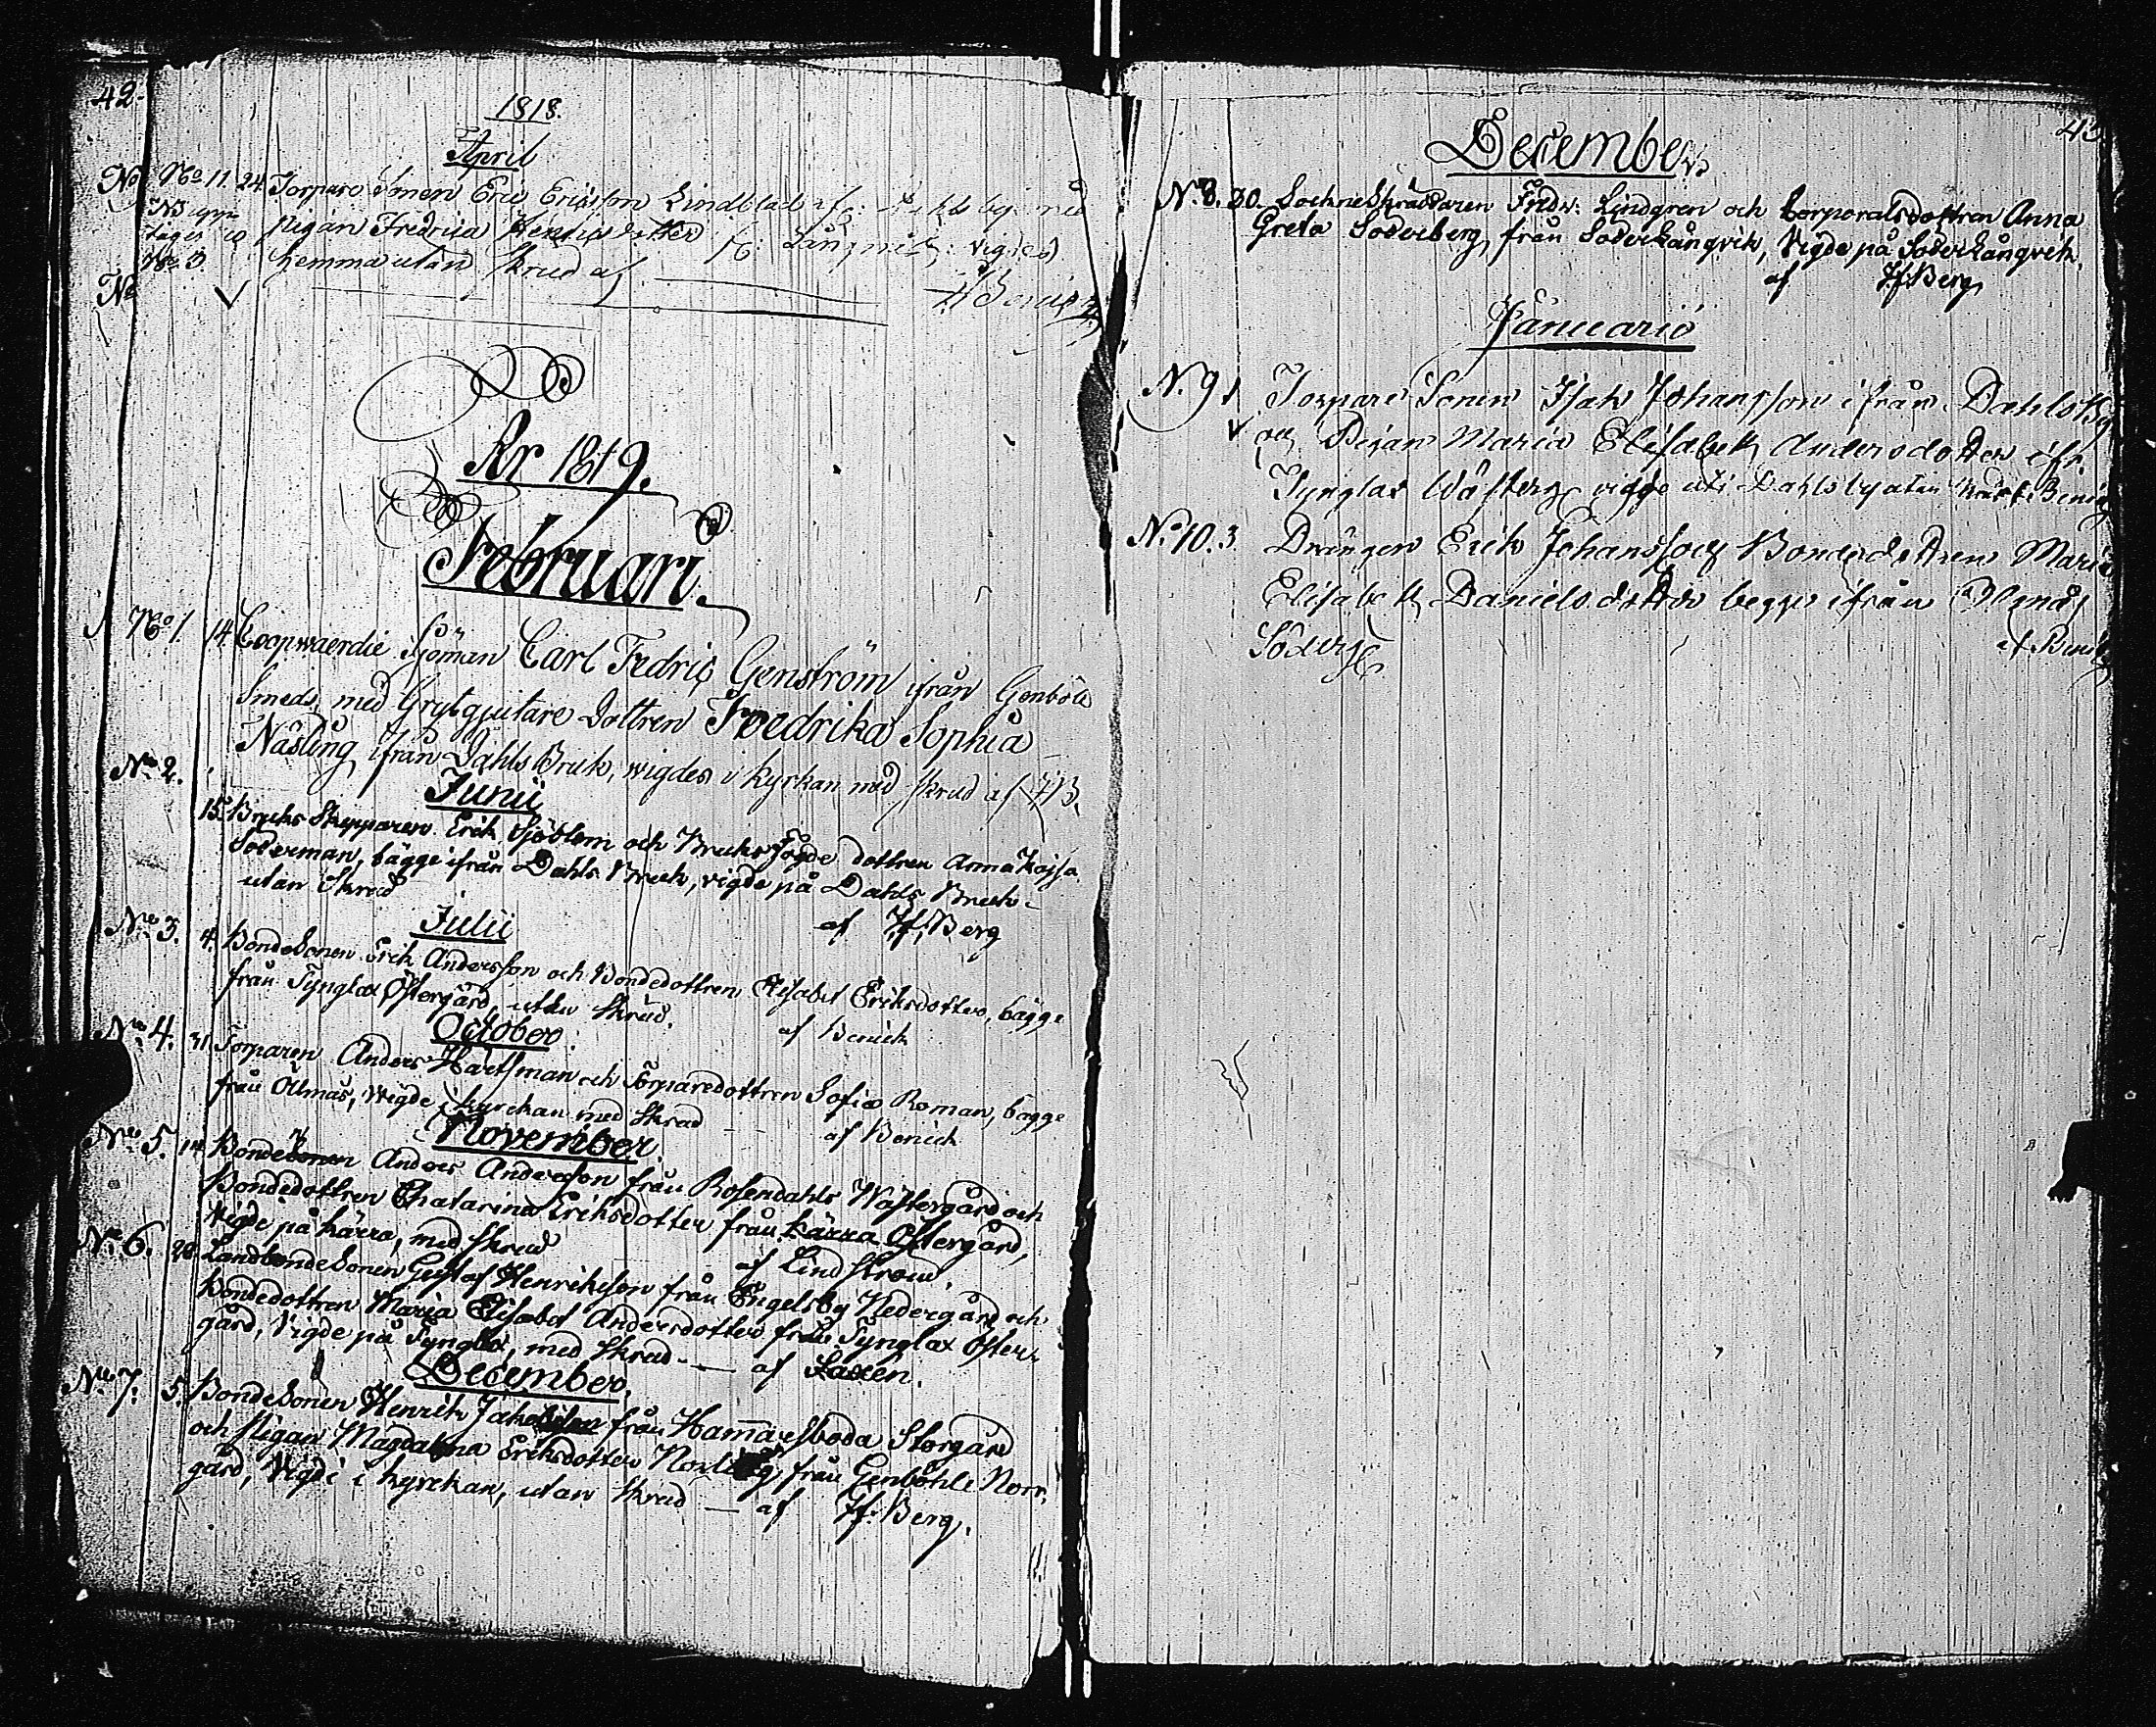 42.
1818.
April
No No 11. 24. Torpare Sonen Eric Ericsson Lindblad
Pigan Fredrica Henricsdotter fr: Långvik: vigdes
No 3. hemma utan skrud af
No
År 1819.
Februari.
No 1. 14. Coopwaerdie Sjöman Carl Fedric Genström ifrån Genböle
Smeds, med Grytgjutare Dottren Fredrika Sophia
Näsling ifrån Dahls Bruk, wigdes i kyrkan med skrud af
No 2.
Junii
15. Bruks Skepparen Erik Sjöblom och Bruks Fogde dottren Anna Kajsa
Söderman, bägge ifrån Dahls Bruk, vigde på Dahls Bruk
utan Skrud
af Hf: Berg
Julii
No 3. 4. Bondesonen Erik Andersson och Bondedottren Elisabet Eriksdotter, bägge
från Tynglax Östergård, utan skrud.
af Benich
October
No 4. 31. Torparen Anders Hartsman och Torparedottren Sofia Roman, bägge
från Ölmås, wigde i kyrckan med Skrud
af Benich
November.
No 5. 14. Bonden Anders Andersson från Rosendahls Wästergård och
Bondedottren Chatarina Eriksdotter från Kärra Östergård,
Vigde på Kärra, med Skrud
af Lindström.
No 6. 28. Landbondesonen Gustaf Henriksson från Engelsby Nedergård och
Bondedottren Maria Elisabet Andersdotter från Tynglax Öster-
gård, Vigde på Tynglax, med Skrud — af Laxén.
December.
No 7. 5. Bondesonen Henrik Jakobsson från Hammarsboda Storgård
och Pigan Magdalena Eriksdotter Norling, från Genböhle Norr-
gård, Vigde i kyrckan, utan Skrud — af Hf: Berg.
43
December
No 8. 30. Sockneskräddaren Fredr: Lindgren och Corporalsdottren Anna
Greta Söderberg från Söderlångvik, Vigde på Söderlångvik.
af Hf: Berg
Januarii
No 9. 1 Torpare Sonen Isak Johansson ifrån Dahlsby
och Pigan Maria Elisabeth Andersdotter ifr.
Tynglax Wästerg vigde uti Dahlsby utan skrud af Benich
No 10. 3. Drängen Erik Johansson och Bondedottren Maria
Elisabeth Danielsdotter begge ifrån Ölmås
Söderg
af Benich